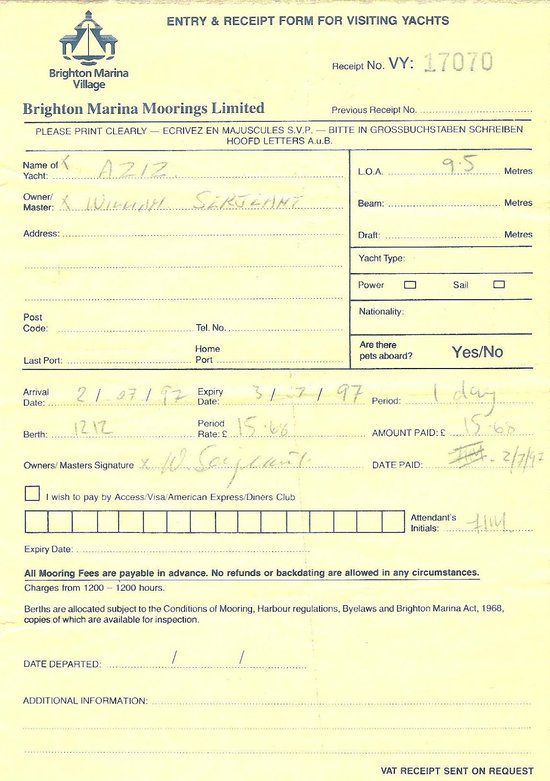 ENTRY & RECEIPT FORM FOR VISITING YACHTS
Brighton Marina
Village
Receipt No. VY: 17070
Brighton Marina Moorings Limited
Previous Receipt No.
PLEASE PRINT CLEARLY — ECRIVEZ EN MAJUSCULES S.V.P. — BITTE IN GROSSBUCHSTABEN SCHREIBEN
HOOFD LETTERS A.u.B.
Name of Yacht: X AZIZ
L.O.A. 9.5 Metres
Owner/ Master: X WILLIAM SERJEANT
Beam: Metres
Address:
Draft: Metres
Yacht Type:
Power Sail
Nationality:
Post Code: Tel. No.
Are there pets aboard? Yes/No
Last Port: Home Port
Arrival Date: 2/07/97 Expiry Date: 3/7/97 Period: 1 day
Berth: 1212 Period Rate: £ 15.68 AMOUNT PAID: £ 15.68
Owners/Masters Signature x W Serjeant DATE PAID: 2/7/97
I wish to pay by Access/Visa/American Express/Diners Club
Attendant's Initials:
Expiry Date:
All Mooring Fees are payable in advance. No refunds or backdating are allowed in any circumstances.
Charges from 1200 – 1200 hours.
Berths are allocated subject to the Conditions of Mooring, Harbour regulations, Byelaws and Brighton Marina Act, 1968,
copies of which are available for inspection.
DATE DEPARTED: / /
ADDITIONAL INFORMATION:
VAT RECEIPT SENT ON REQUEST